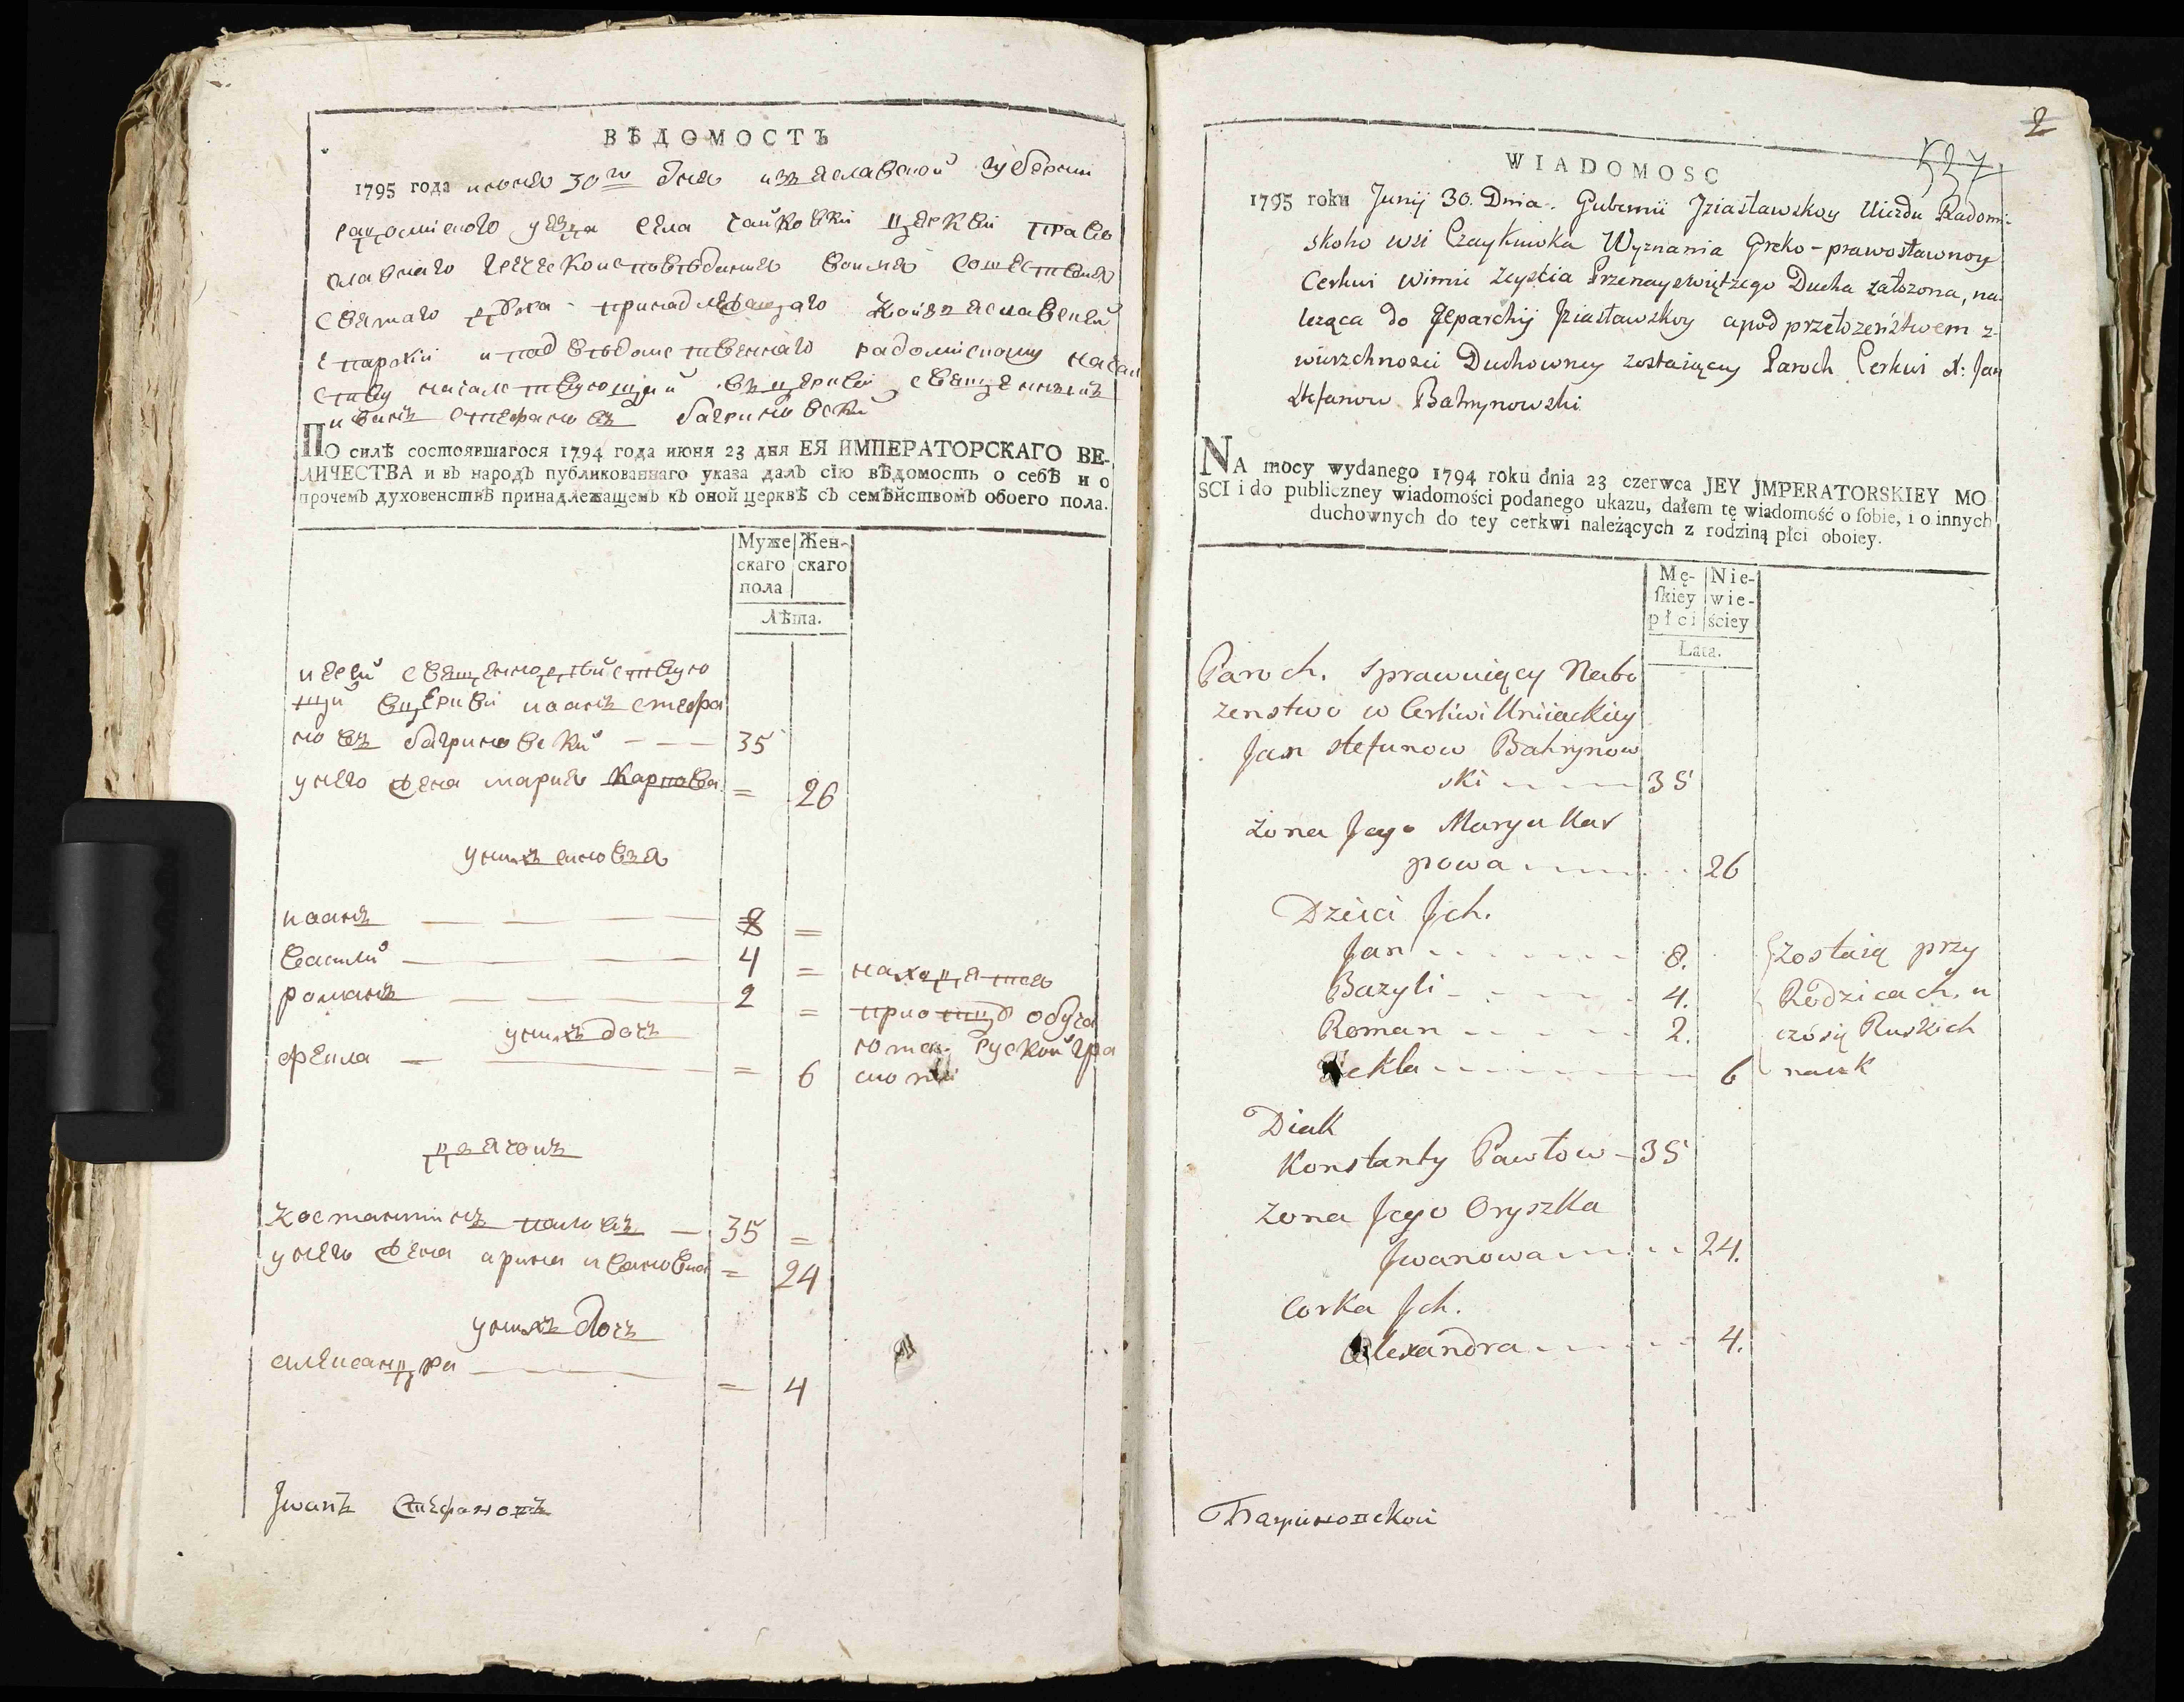 ВѢДОМОСТЬ
1795 года июня 30го дня изяславской губернии
радомиского уезда села чайковки церкви право
славнаго греческоисповѣдания воимя сошествия
святаго духа принадлежащаго коизяславской
епархии и под вѣдомственнаго радомискому
началствующий въ церкви священникъ
иванъ стефановъ багриновски
ПО силѣ состоявшагося 1794 года июня 23 дня ЕЯ ИМПЕРАТОРСКАГО ВЕ-
ЛИЧЕСТВА и въ народъ публикованнаго указа далъ сію вѣдомость о себѣ и о
прочемъ духовенствѣ принадлежащемъ къ оной церквѣ съ семѣйствомъ обоего пола.
Муже Жен-
скаго скаго
пола
Лѣта.
иерей священнодействую
щий вцеркви иоанъ стефа
новъ багриновский 35
унего жена мария карпова = 26
унихъ синовья
иоанъ 8 =
василий 4 = находятся
романъ 2 = приотцу обуча
унихъ дочъ ются руской гра
фекла = 6 моти
дьячокъ
костантинъ павловъ 35 =
унего жена арина ивановна = 24
унихъ дочъ
александра = 4
Jwanъ Стефановъ
2
537
WIADOMOSC
1795 roku Junij 30. Dnia. Gubernii Jziasławskoy Uiezdu Radomi-
skoho wsi Czaykuwka Wyznania Greko-prawosławnoy
Cerkwi wimie Zeyścia Przenayswiętzego Ducha założona, na-
leząca do Jeparchij Jziasławskoy apod przełożeństwem z-
wierzchnosci Duchowney zostaiącey Paroch Cerkwi X: Jan
Stefanow Bahrynowski
NA mocy wydanego 1794 roku dnia 23 czerwca JEY JMPERATORSKIEY MO
SCI i do publiczney wiadomości podanego ukazu, dałem tę wiadomość o ſobie, i o innych
duchownych do tey cerkwi należących z rodziną płci oboiey.
Mę- Nie-
ſkiey wie-
płci ściey
Lata.
Paroch. Sprawuiący Nabo
zenstwo w Cerkwi Uniiackiey
Jan Stefanow Bahrynow
ski 35
Zona Jego Marya Kar
powa 26
Dzieci Jch.
Jan 8. Zostaią przy
Bazyli 4. Rodzicach, u
Roman 2. czósię Ruskich
Tekla 6 nauk
Diak
Konstanty Pawłow 35
Zona Jego Oryszka
Jwanowa 24.
Corka Jch.
Alexandra 4.
Багриновской